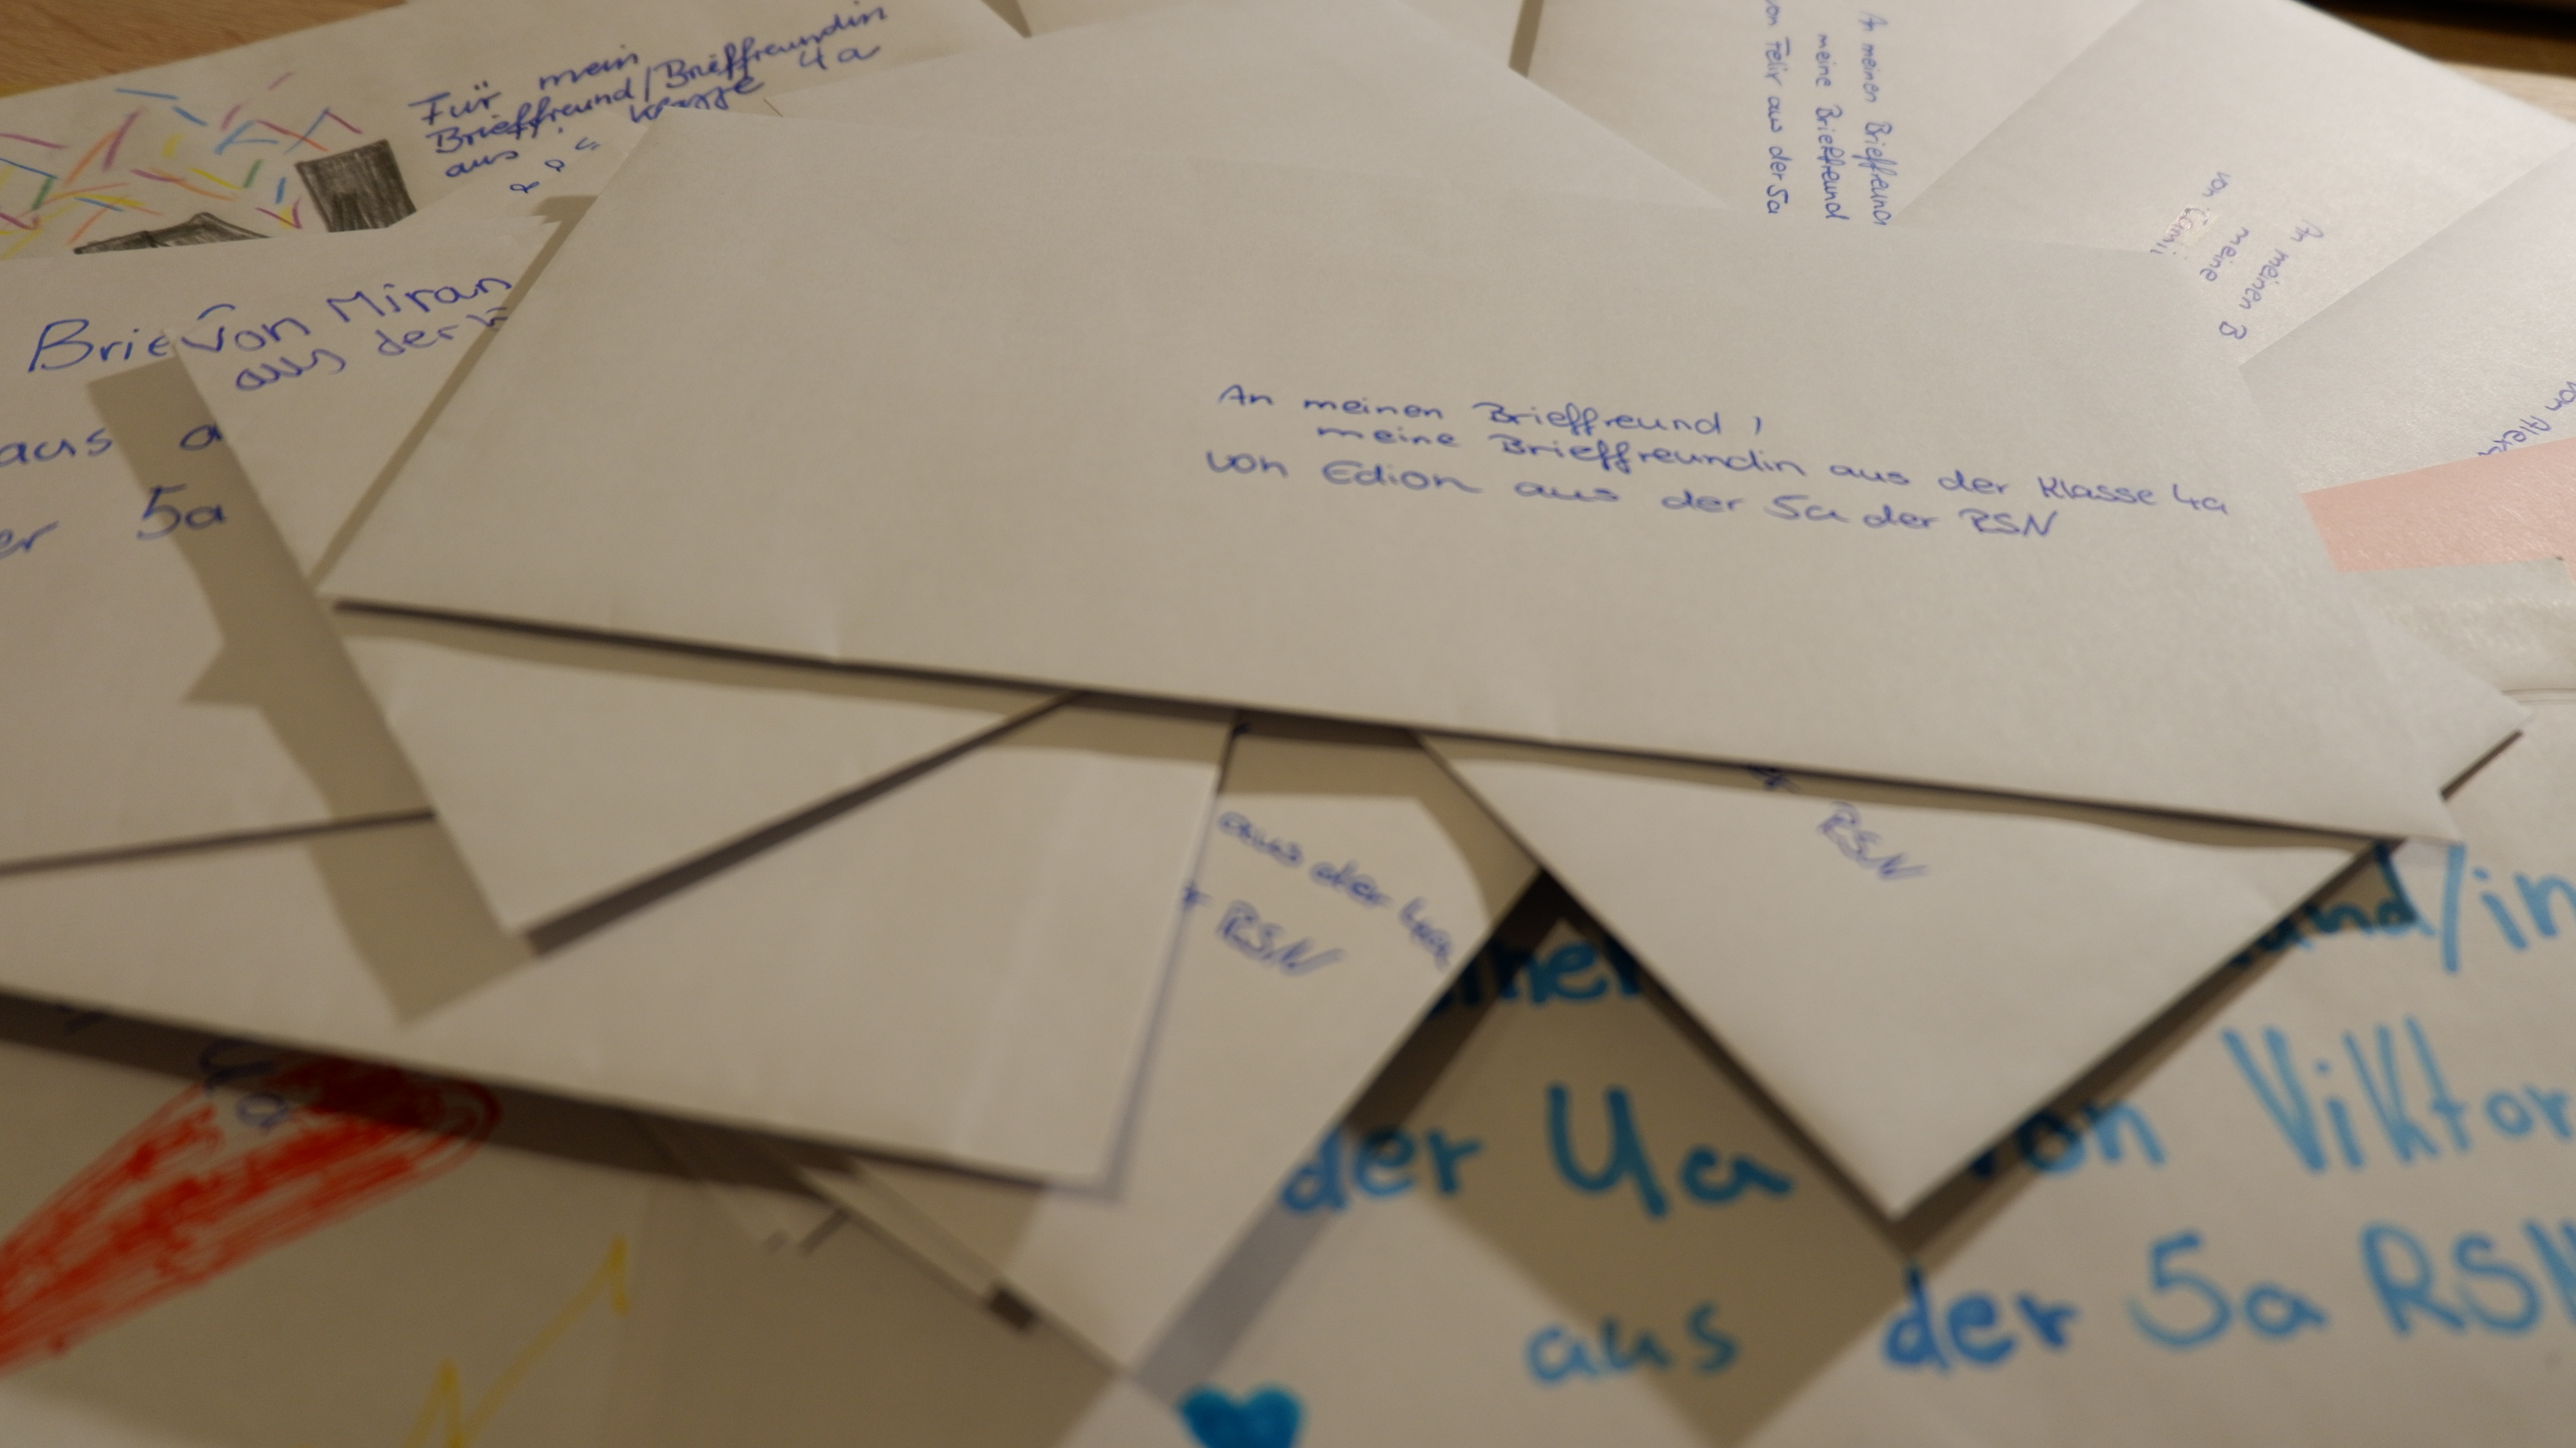 Für mein
Brieffreund/Brieffreundin
aus Klasse 4a
Von Miran
aus der
aus
5a
An meinen Brieffreund
meine Brieffreund
von Felix aus der 5a
An meinen B
meine
An meinen Brieffreund /
meine Brieffreundin aus der Klasse 4a
von Edion aus der 5a der RSN
RSN
aus der 4a
RSN
/in
der 4a von Viktor
aus der 5a RSN